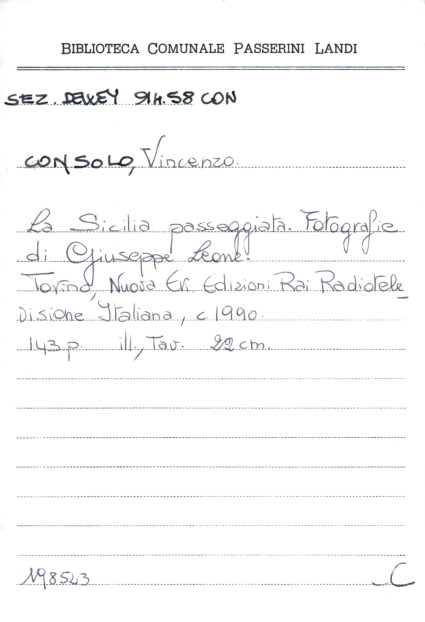 BIBLIOTECA COMUNALE PASSERINI LANDI
SEZ. DEWEY 914.58 CON
CONSOLO, Vincenzo.
La Sicilia passeggiata. Fotografie
di Giuseppe Leone.
Torino, Nuova Eri Edizioni Rai Radiotele_
visione Italiana, c 1990.
143 p. ill., Tav. 22 cm.
198543 C